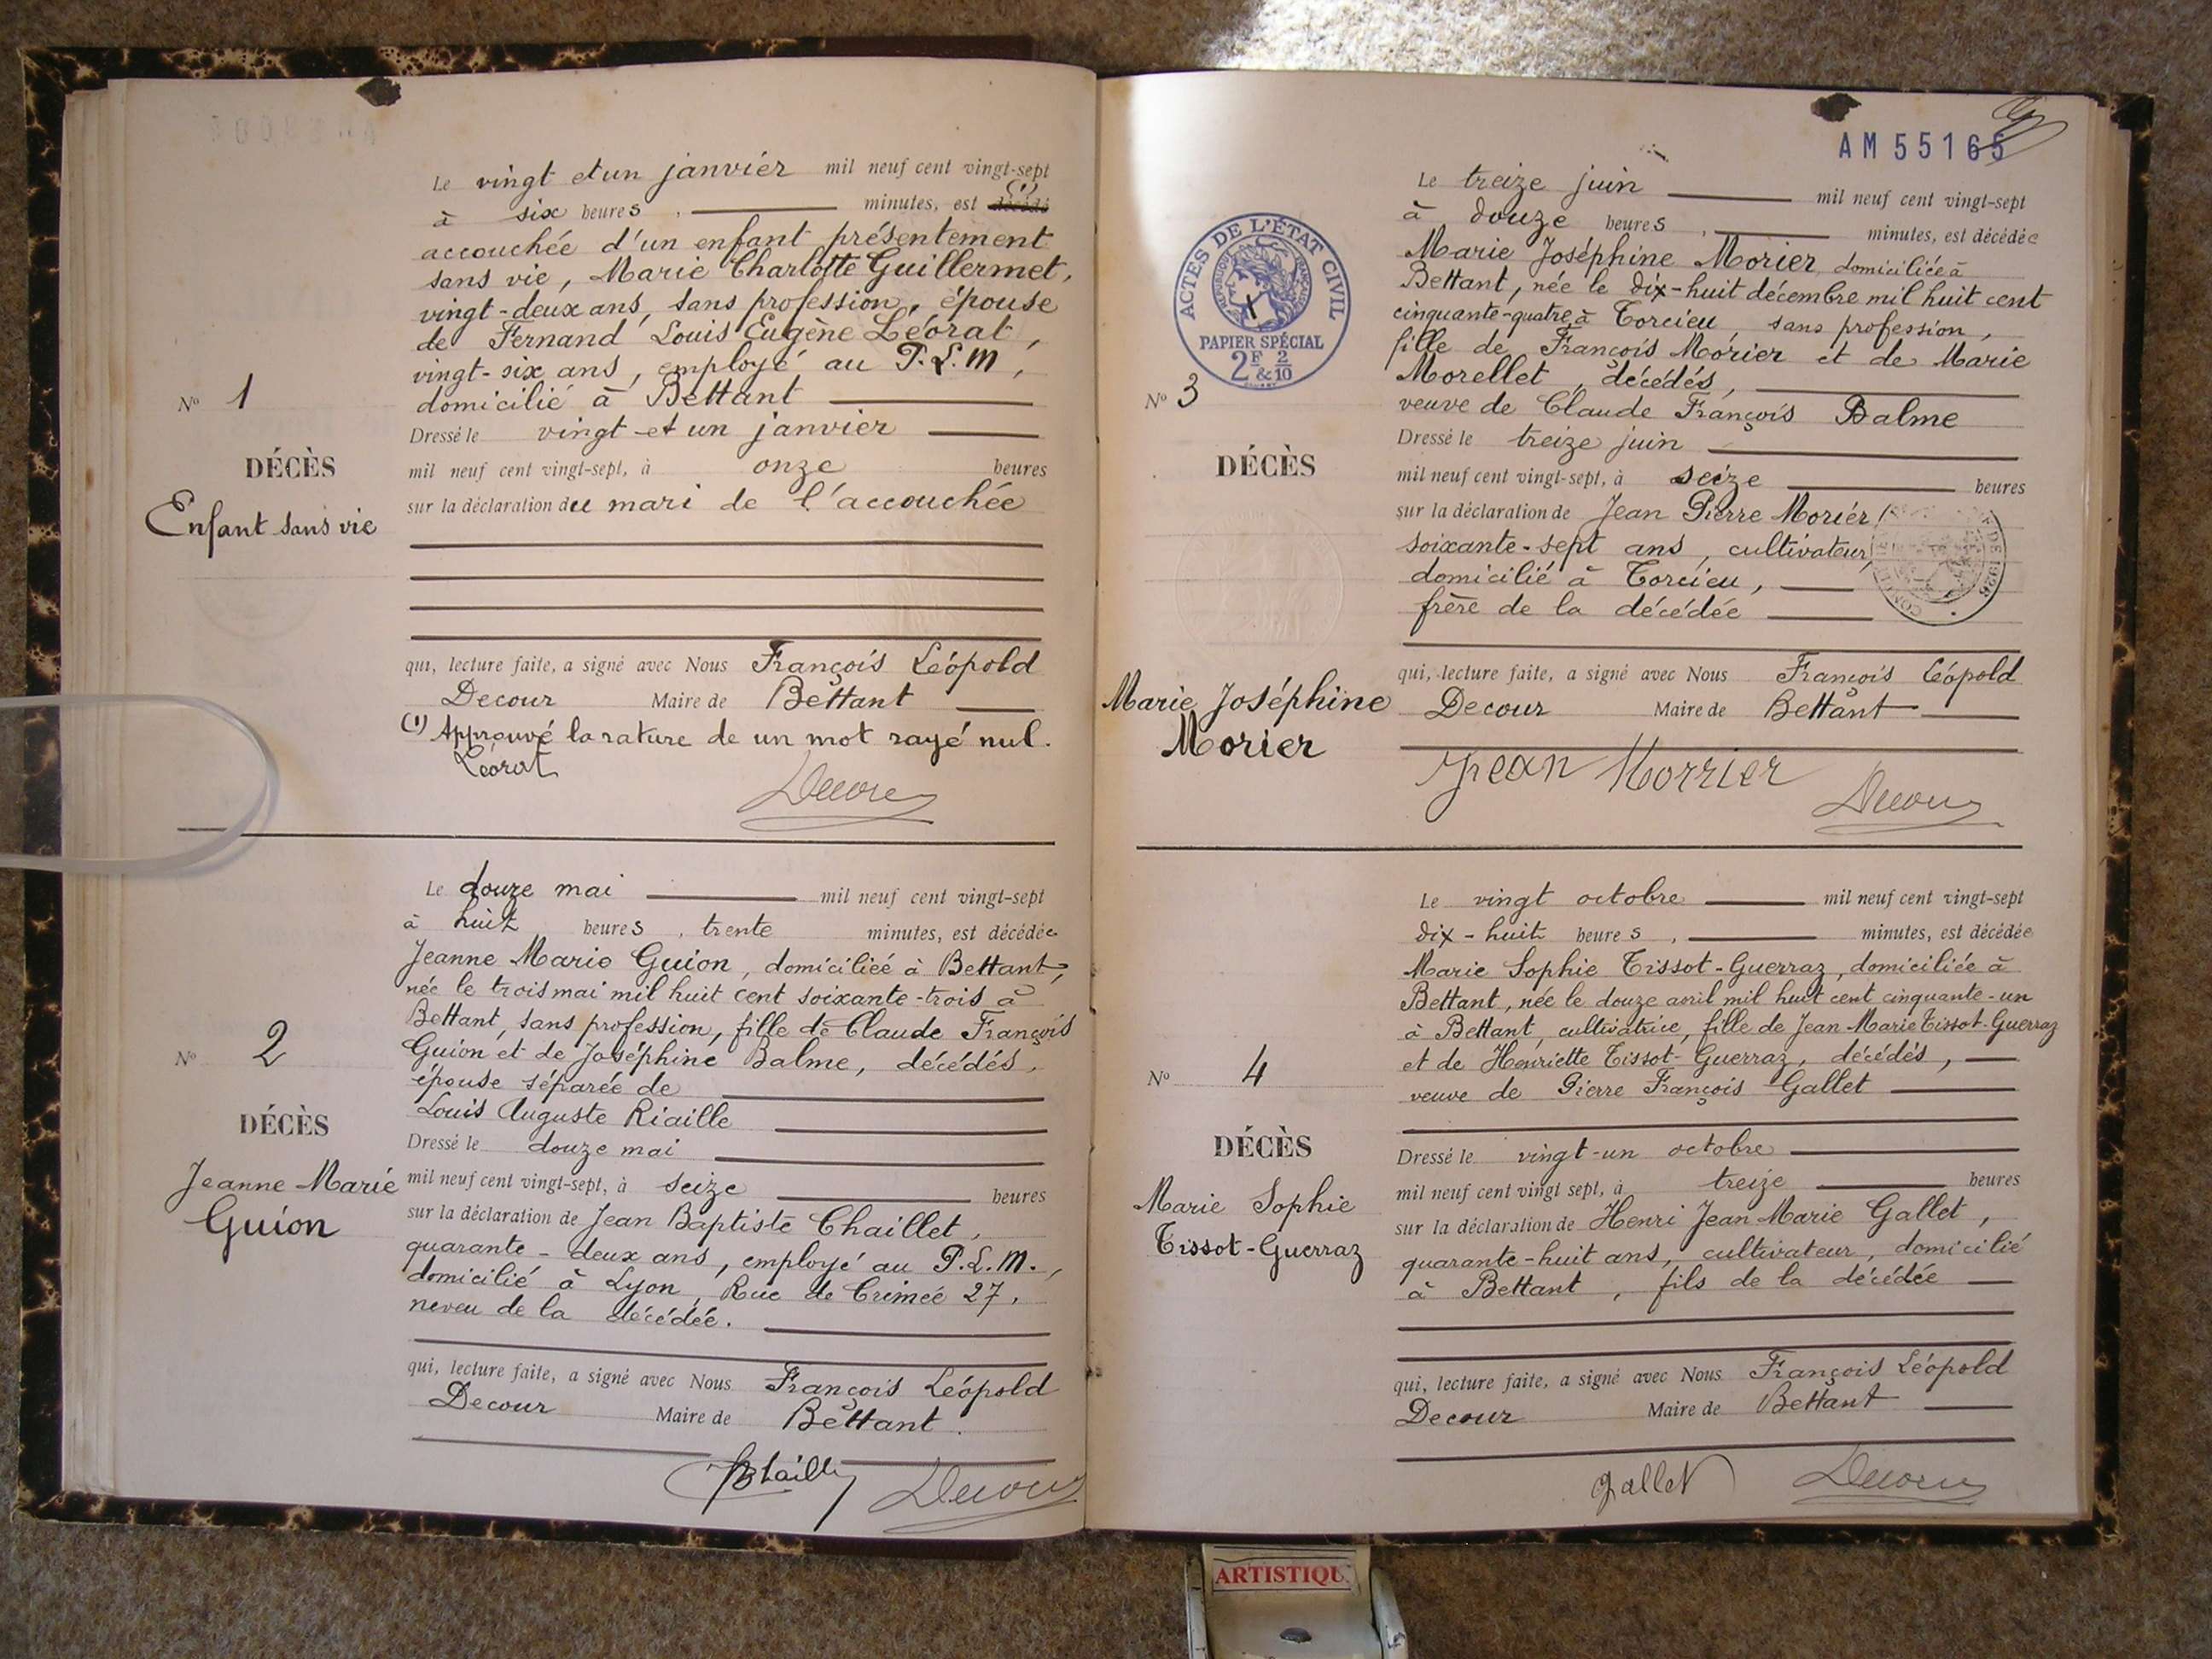 Le vingt et un janvier mil neuf cent vingt-sept
(1)
à six heures, minutes, est décédé
accouchée d'un enfant présentement
sans vie, Marie Charlotte Guillermet,
vingt-deux ans, sans profession, épouse
de Fernand Louis Eugène Léorat,
vingt-six ans, employé au P.L.M,
domicilié à Bettant
Dressé le vingt et un janvier
mil neuf cent vingt-sept, à onze heures
sur la déclaration du mari de l'accouchée
qui, lecture faite, a signé avec Nous François Léopold
Decour Maire de Bettant
(1) Approuvé la rature de un mot rayé nul.
Léorat Decour
N° 1
DÉCÈS
Enfant sans vie
Le douze mai mil neuf cent vingt-sept
à huit heures, trente minutes, est décédée
Jeanne Marie Guion, domiciliée à Bettant,
née le trois mai mil huit cent soixante-trois à
Bettant, sans profession, fille de Claude François
Guion et de Joséphine Balme, décédés,
épouse séparée de
Louis Auguste Riaille
Dressé le douze mai
mil neuf cent vingt-sept, à seize heures
sur la déclaration de Jean Baptiste Chaillet,
quarante-deux ans, employé au P.L.M.,
domicilié à Lyon, Rue de Crimée 27,
neveu de la décédée.
qui, lecture faite, a signé avec Nous François Léopold
Decour Maire de Bettant.
Decour
N° 2
DÉCÈS
Jeanne Marie
Guion
AM55165
ACTES DE L'ÉTAT CIVIL
RÉPUBLIQUE FRANÇAISE
PAPIER SPÉCIAL
2F 2/10
&
Le treize juin mil neuf cent vingt-sept
à douze heures, minutes, est décédée
Marie Joséphine Morier, domiciliée à
Bettant, née le dix-huit décembre mil huit cent
cinquante-quatre à Torcieu, sans profession,
fille de François Morier et de Marie
Morellet, décédés,
veuve de Claude François Balme
Dressé le treize juin
mil neuf cent vingt-sept, à seize heures
sur la déclaration de Jean Pierre Morier,
soixante-sept ans, cultivateur,
domicilié à Torcieu,
frère de la décédée
DE 1926
qui, lecture faite, a signé avec Nous François Léopold
Decour Maire de Bettant
Jean Morrier Decour
N° 3
DÉCÈS
Marie Joséphine
Morier
Le vingt octobre mil neuf cent vingt-sept
dix-huit heures, minutes, est décédée
Marie Sophie Tissot-Guerraz, domiciliée à
Bettant, née le douze avril mil huit cent cinquante-un
à Bettant, cultivatrice, fille de Jean-Marie Tissot-Guerraz
et de Henriette Tissot-Guerraz, décédés,
veuve de Pierre François Gallet
Dressé le vingt-un octobre
mil neuf cent vingt sept, à treize heures
sur la déclaration de Henri Jean Marie Gallet,
quarante-huit ans, cultivateur, domicilié
à Bettant, fils de la décédée
qui, lecture faite, a signé avec Nous François Léopold
Decour Maire de Bettant
Gallet Decour
N° 4
DÉCÈS
Marie Sophie
Tissot-Guerraz
ARTISTIQU